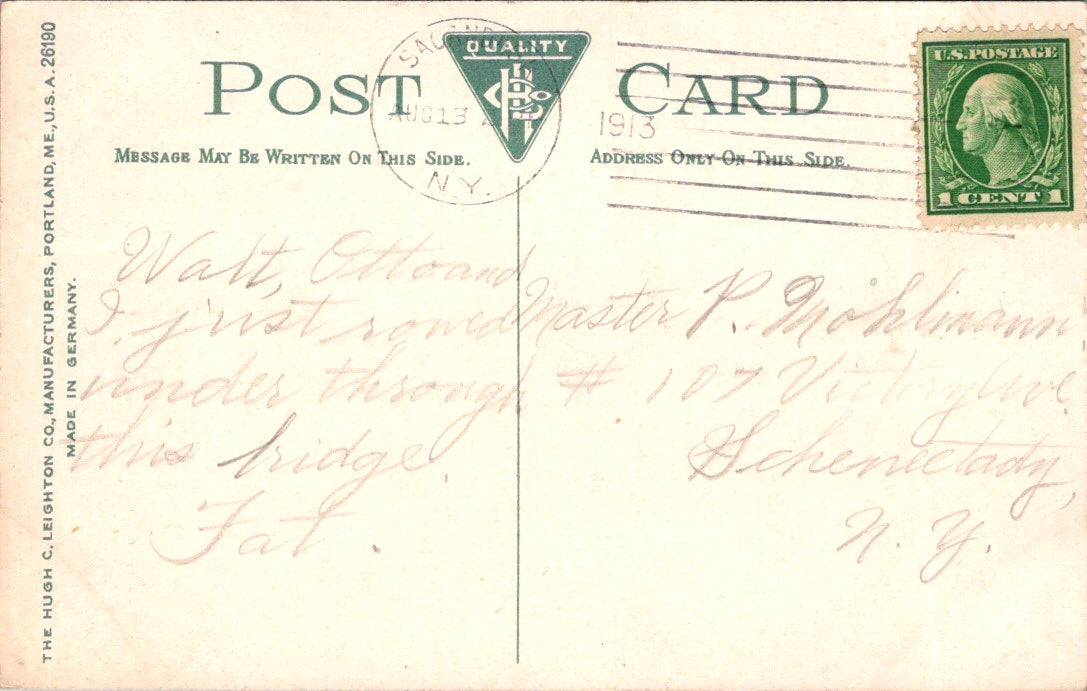 THE HUGH C. LEIGHTON CO., MANUFACTURERS, PORTLAND, ME., U.S.A. 26190
MADE IN GERMANY.
POST CARD
QUALITY
N.Y.
AUG 13
1913
U.S. POSTAGE
1 CENT 1
MESSAGE MAY BE WRITTEN ON THIS SIDE.
ADDRESS ONLY ON THIS SIDE.
Walt, Otto and
I just rowed
under through
this bridge.
Fat.
Master P. Mohlmann
# 107 Victory Ave
Schenectady,
N. Y.